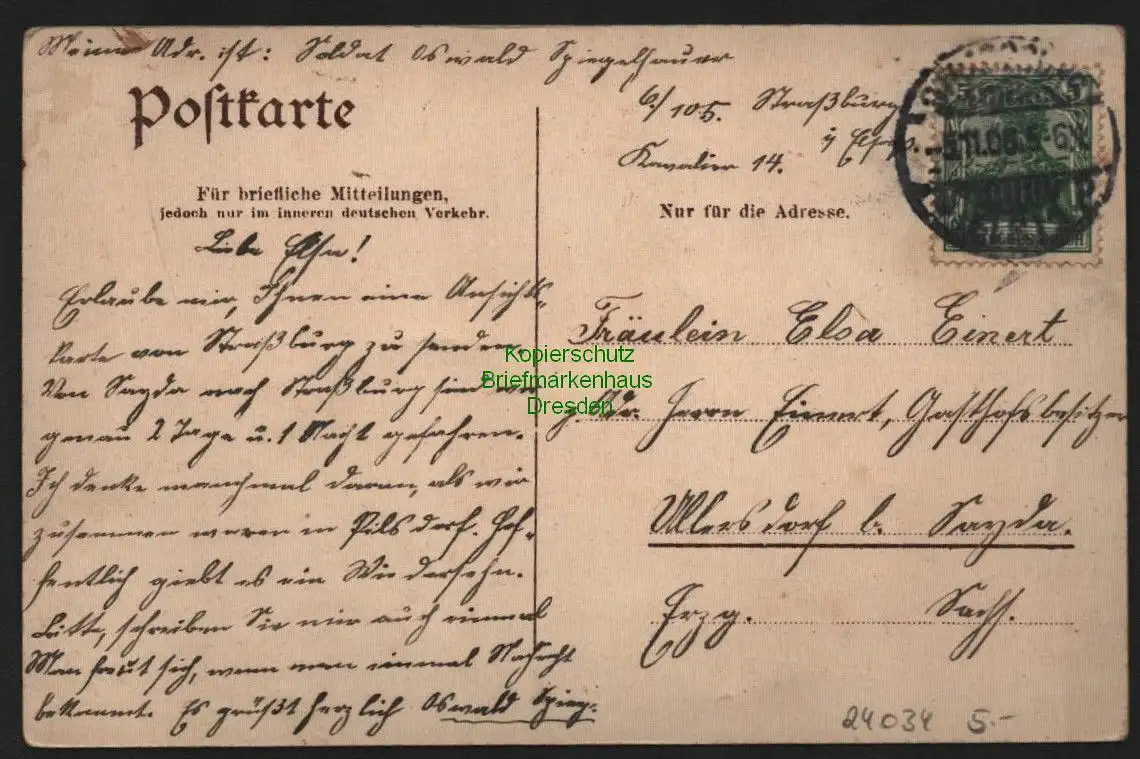 Meine Adr. ist: Soldat Oswald Spiegelhauer
6/105. Straßburg
i/ Elsass.
Kavalier 14.
Postkarte
Für briefliche Mitteilungen,
jedoch nur im inneren deutschen Verkehr.
Nur für die Adresse.
Liebe Elsa!
Erlaube mir, Ihnen eine Ansichts-
karte von Straßburg zu senden.
Von Sayda nach Straßburg sind wir
genau 2 Tage u. 1 Nacht gefahren.
Ich denke manchmal daran, als wir
zusammen waren in Pilsdorf. Hof-
fentlich giebt es ein Wiedersehn.
Bitte, schreiben Sie mir auch einmal
Man freut sich, wenn man einmal Nachricht
bekommt. Es grüßt herzlich Oswald Spieg.
Fräulein Elsa Einert
z. Adr. Herrn Einert, Gasthofsbesitzer
Ullersdorf b. Sayda.
Erzg. Sachs.
Kopierschutz
Briefmarkenhaus
Dresden
24034 5.-